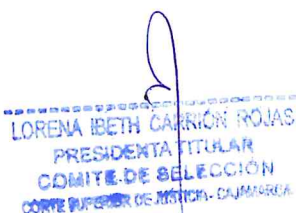 LORENA IBETH CARRIÓN ROJAS
PRESIDENTA TITULAR
COMITE DE SELECCIÓN
CORTE SUPERIOR DE JUSTICIA - CAJAMARCA